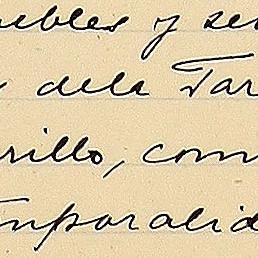 uebles y se
dela Tar
rillo, com
mporalid